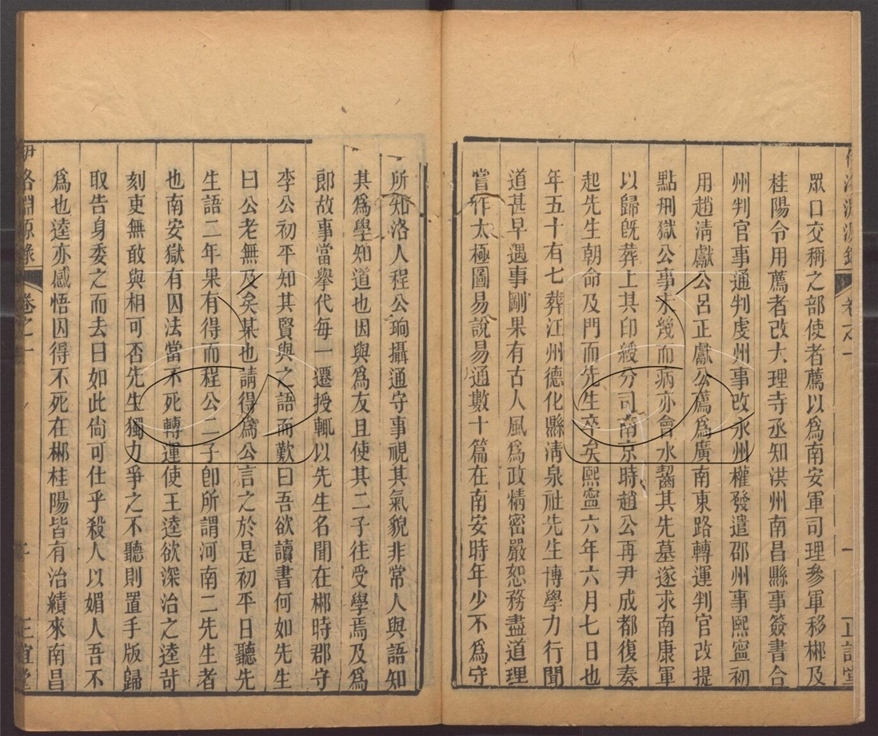 眾口交稱之部使者薦以為南安軍司理參軍移郴及
桂陽令用薦者改大理寺丞知洪州南昌縣事簽書合
州判官事通判虔州事改永州權發遣邵州事熙寧初
用趙清獻公呂正獻公薦為廣南東路轉運判官改提
點刑獄公事未幾而病亦會水齧其先墓遂求南康軍
以歸既葬上其印綬分司南京時趙公再尹成都復奏
起先生朝命及門而先生卒矣熙寧六年六月七日也
年五十有七葬江州德化縣清泉社先生博學力行聞
道甚早遇事剛果有古人風為政精密嚴恕務盡道理
嘗作太極圖易說易通數十篇在南安時年少不為守
所知洛人程公珦攝通守事視其氣貌非常人與語知
其為學知道也因與為友且使其二子往受學焉及為
郎故事當舉代每一遷授輒以先生名聞在郴時郡守
李公初平知其賢與之語而歎曰吾欲讀書何如先生
曰公老無及矣某也請得為公言之於是初平日聽先
生語二年果有得而程公二子卽所謂河南二先生者
也南安獄有囚法當不死轉運使王逵欲深治之逵苛
刻吏無敢與相可否先生獨力爭之不聽則置手版歸
取告身委之而去曰如此尙可仕乎殺人以媚人吾不
為也逵亦感悟囚得不死在郴桂陽皆有治績來南昌
伊洛淵源錄 卷之一 正誼堂